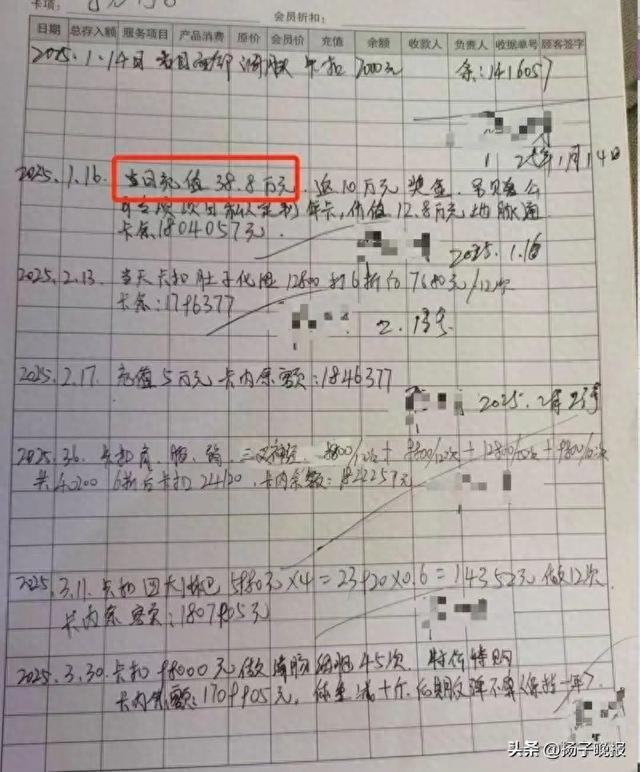 卡项：
会员折扣：
日期 总存入额 服务项目 产品消费 原价 会员价 充值 余额 收款人 负责人 收据单号 顾客签字
2025.1.14日 卡扣 7000元 余：1416057
25年1月14日
2025.1.16. 当日充值 38.8万元. 返10万元 奖金.
年卡，价值12.8万元
卡余1804057元.
2025.1.16
2025.2.13. 当天卡扣 肚子 12800 打6折后 7680元/12次
卡余：1796377
2.13号
2025.2.17. 充值5万元 卡内余额：1846377
2025.2月23号
2025.3.6. 卡扣 肩、腰、 9800/12次 + 12800/12次 + 9800/12次
共40200 6折后卡扣24120. 卡内余额：1822257元
2025.3.11. 卡扣 四大淋巴 5980元×4=23920×0.6=14352元 做12次
卡内余额：1807905元
2025.3.30. 卡扣 98000元 做 45次. 特价特购
卡内余额：1709905元，体重减十斤，后期反弹不算（保持一年）
头条 @扬子晚报